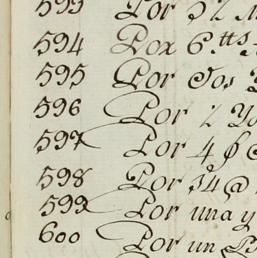 593 Por 32
594 Por 6 tts
595 Por dos
596 Por 2
597 Por 4
598 Por 34 @
599 Por una y
600 Por un